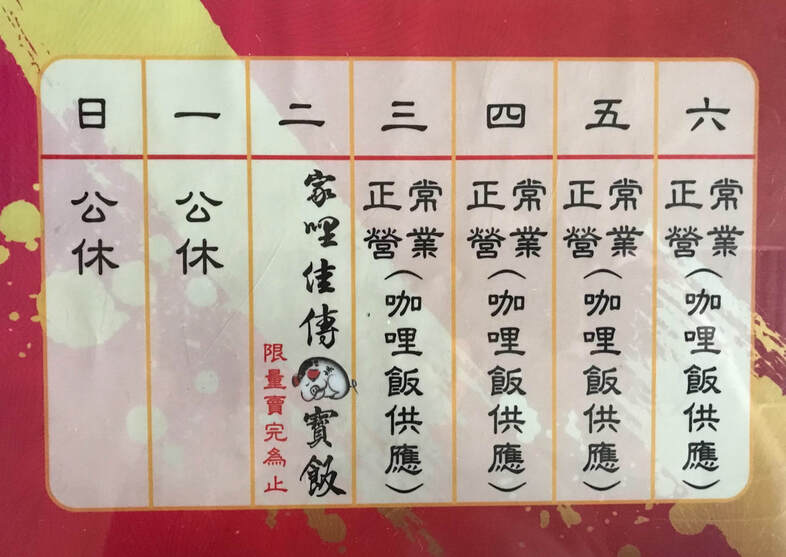 日
公休
一
公休
二
家哩佳傳寶飯
限量賣完為止
三
正常營業(咖哩飯供應)
四
正常營業(咖哩飯供應)
五
正常營業(咖哩飯供應)
六
正常營業(咖哩飯供應)